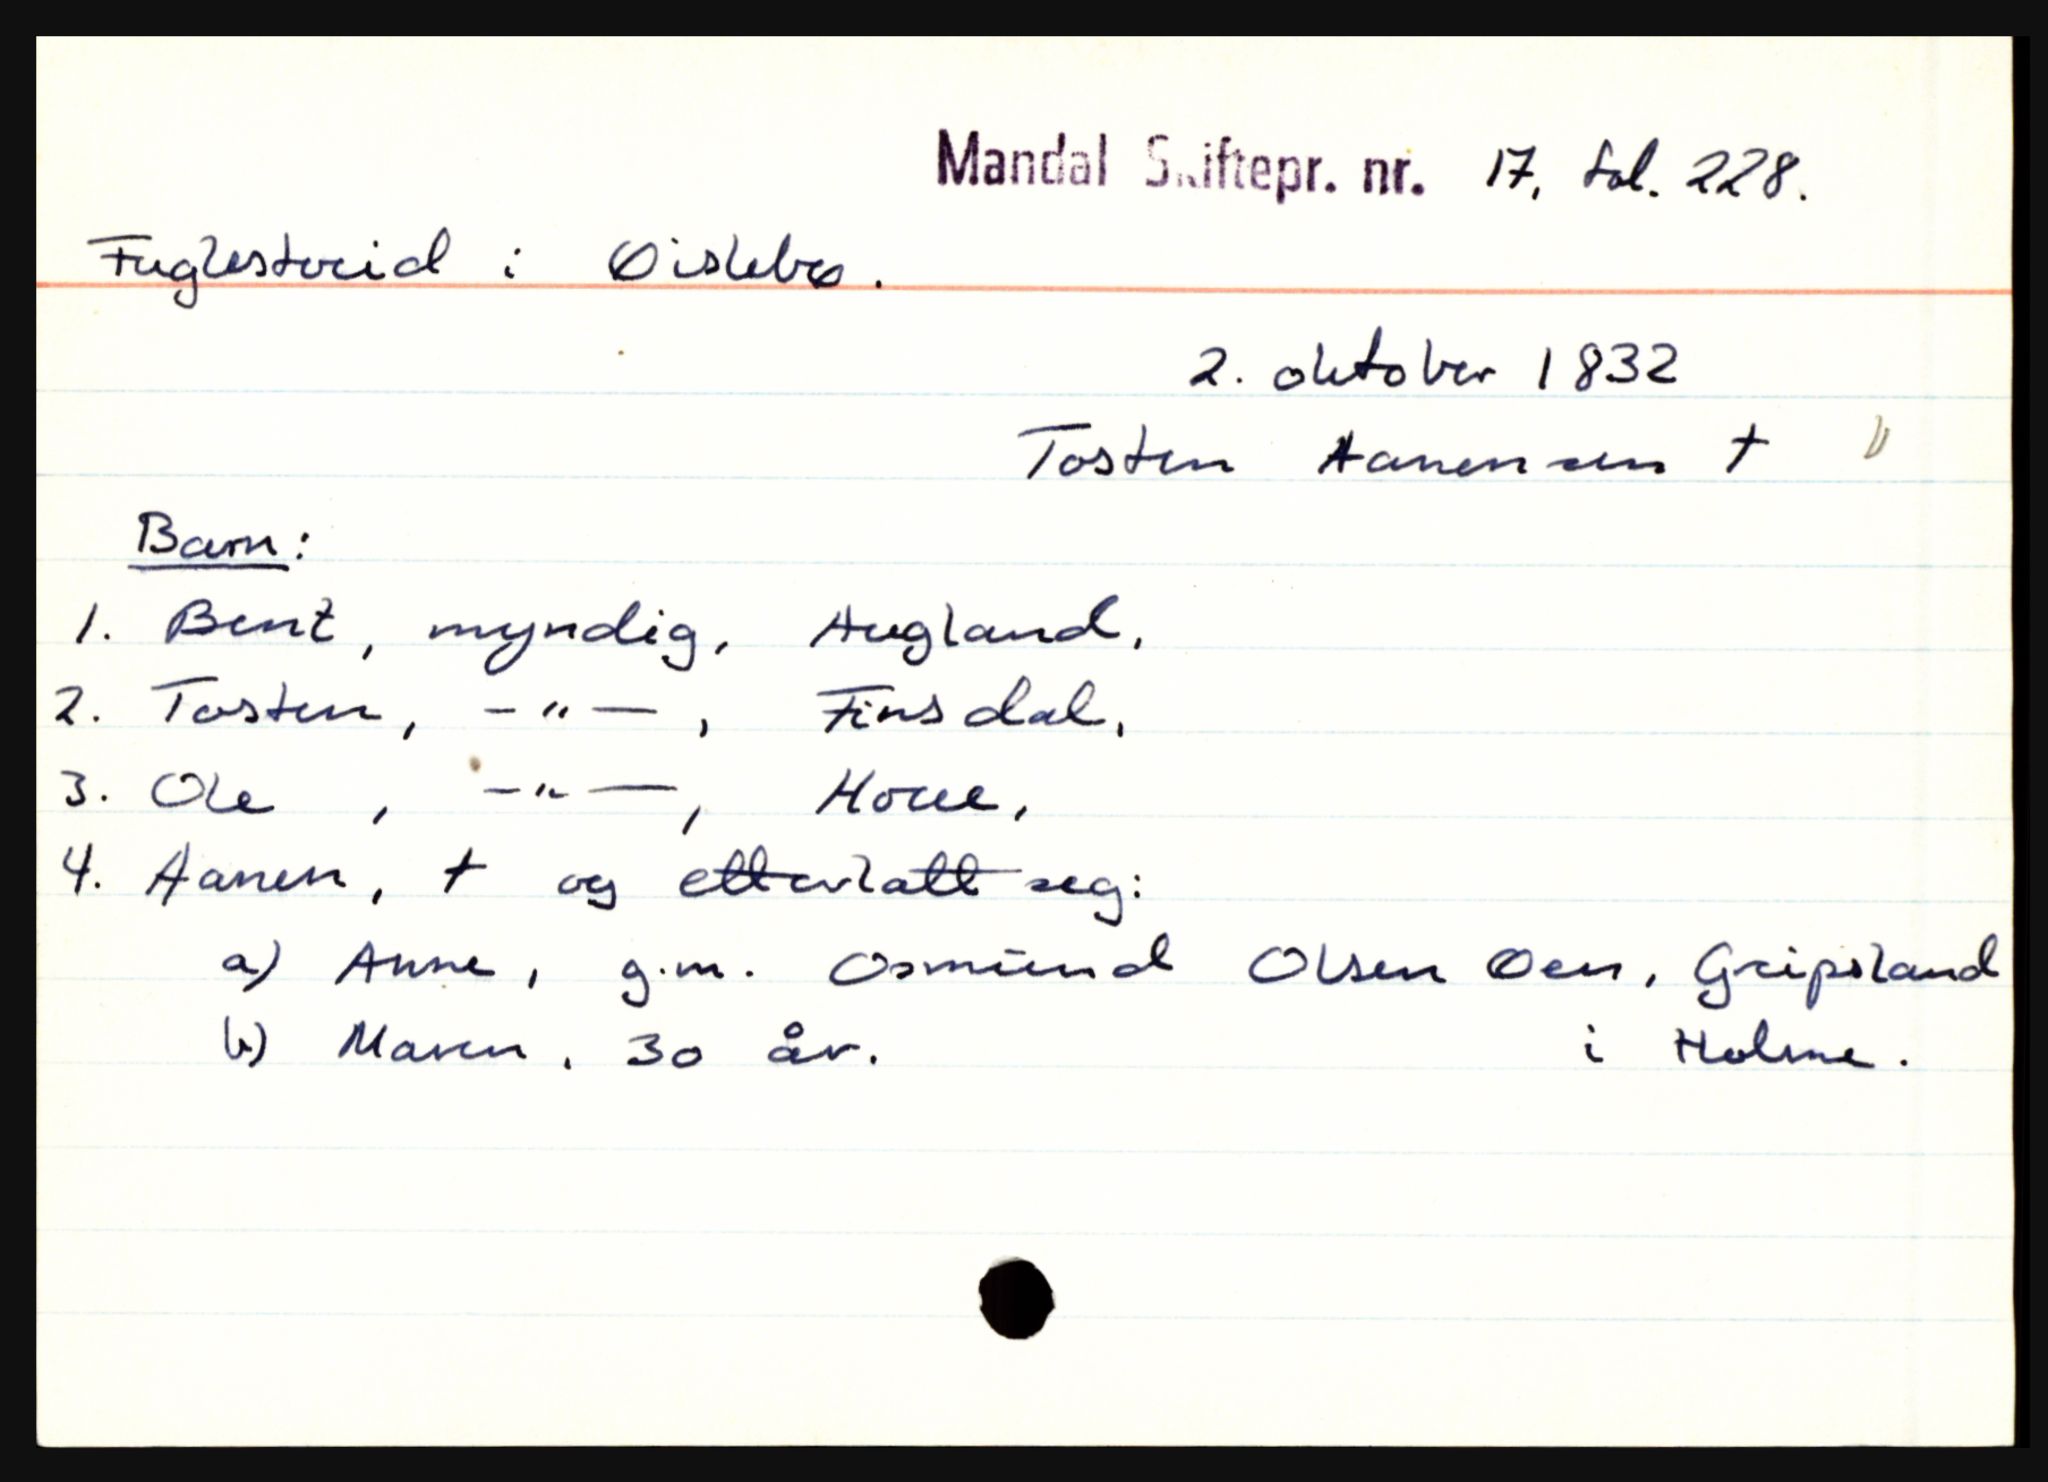 Mandal Skiftepr. nr. 17, fol. 228.
Fuglestveid i Øislebø.
2. oktober 1832
Tosten Aanensen †
Barn:
1. Bent, myndig, Augland,
2. Tosten, -"-, Finsdal,
3. Ole, -"-, Houe,
4. Aanen, † og etterlatt seg:
a) Anne, g.m. Osmund Olsen Øen, Gripsland
b) Maren, 30 år. i Holme.